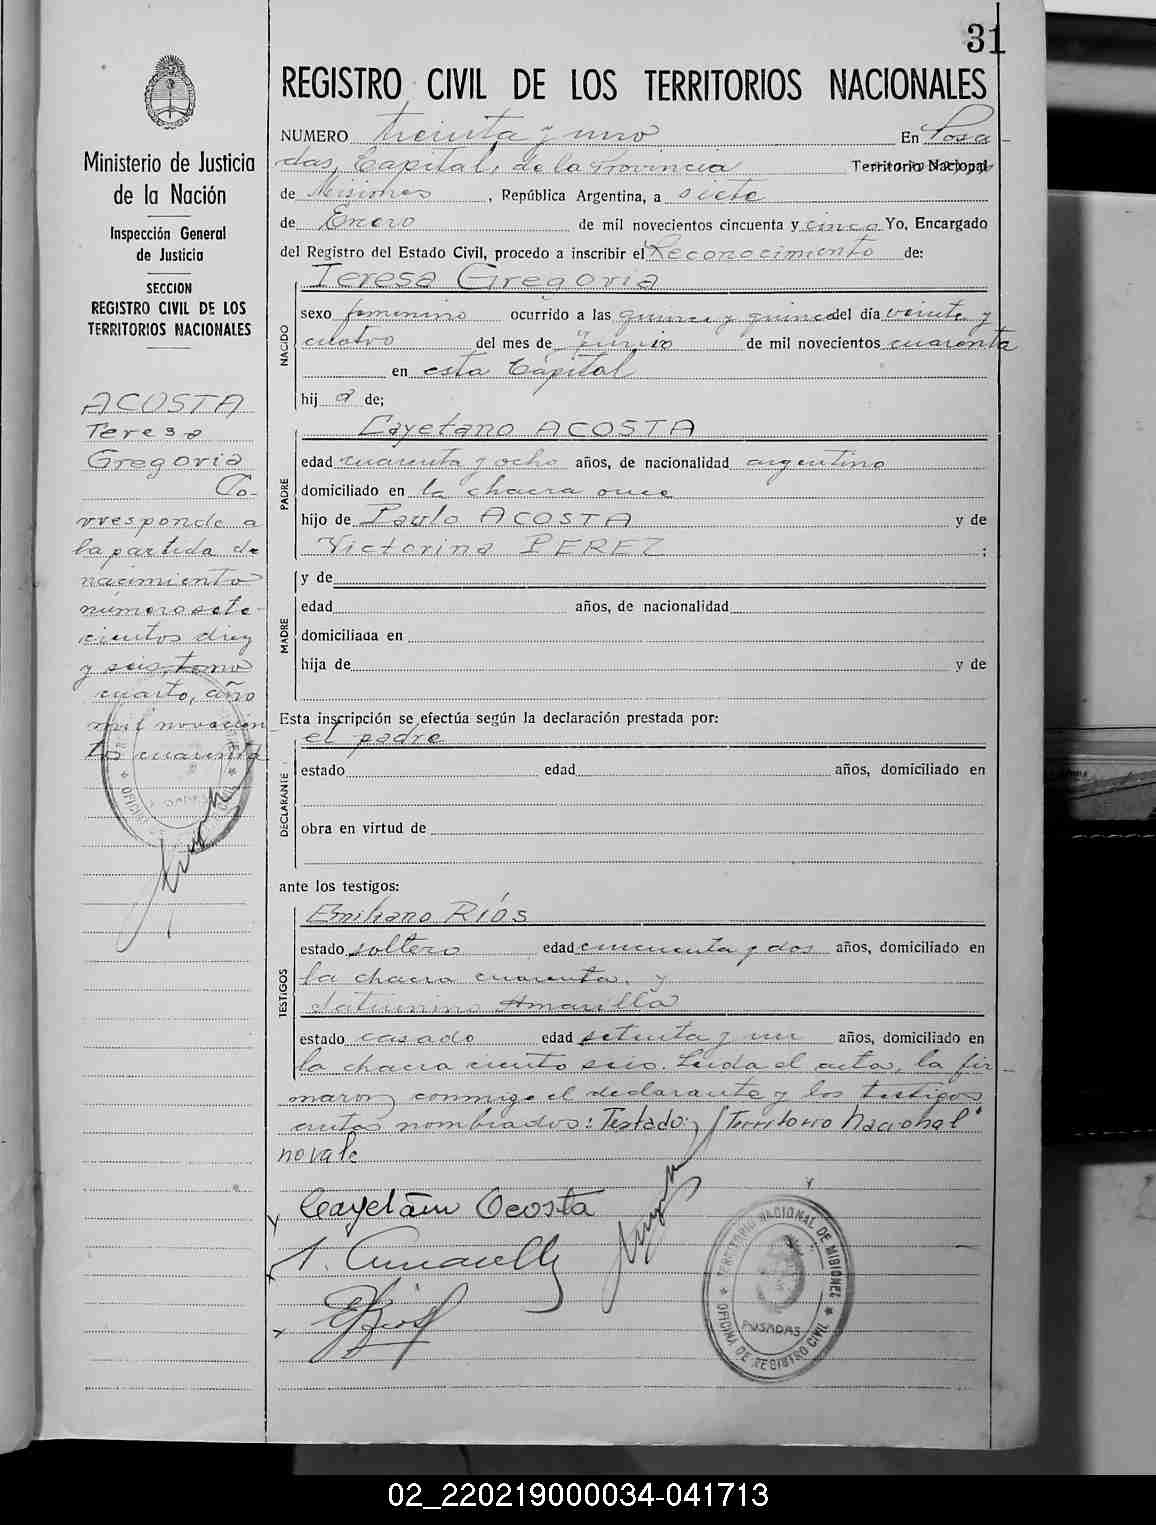 31
REGISTRO CIVIL DE LOS TERRITORIOS NACIONALES
Ministerio de Justicia
de la Nación
Inspección General
de Justicia
SECCION
REGISTRO CIVIL DE LOS
TERRITORIOS NACIONALES
ACOSTA
Teresa
Gregoria
Co-
rresponde a
la partida de
nacimiento
número sete-
cientos diez
y seis, tomo
cuarto, año
mil novecien
tos cuarenta
NUMERO treinta y uno En Posa
das, Capital, de la Provincia Territorio Nacional
de Misiones, República Argentina, a siete
de Enero de mil novecientos cincuenta y cinco Yo, Encargado
del Registro del Estado Civil, procedo a inscribir el Reconocimiento de:
Teresa Gregoria
NACIDO
sexo femenino ocurrido a las quince y quince del día veinte y
cuatro del mes de Junio de mil novecientos cuarenta
en esta Capital
hij a de;
PADRE
Cayetano ACOSTA
edad cuarenta y ocho años, de nacionalidad argentino
domiciliado en la chacra once
hijo de Paulo ACOSTA y de
Victorina PEREZ ;
MADRE
y de
edad años, de nacionalidad
domiciliada en
hija de y de
Esta inscripción se efectúa según la declaración prestada por:
DECLARANTE
el padre
estado edad años, domiciliado en
obra en virtud de
ante los testigos:
TESTIGOS
Emiliano Ríos
estado soltero edad cincuenta y dos años, domiciliado en
la chacra cuarenta, y
Saturnino Amarilla
estado casado edad setenta y un años, domiciliado en
la chacra ciento seis. Leida el acta, la fir-
maron conmigo el declarante y los testigos
antes nombrados: Testado: "Territorio Nacional"
no vale
Cayetano Acosta
S. Amarilla
E Rios
TERRITORIO NACIONAL DE MISIONES
POSADAS
OFICINA DE REGISTRO CIVIL
02_220219000034-041713